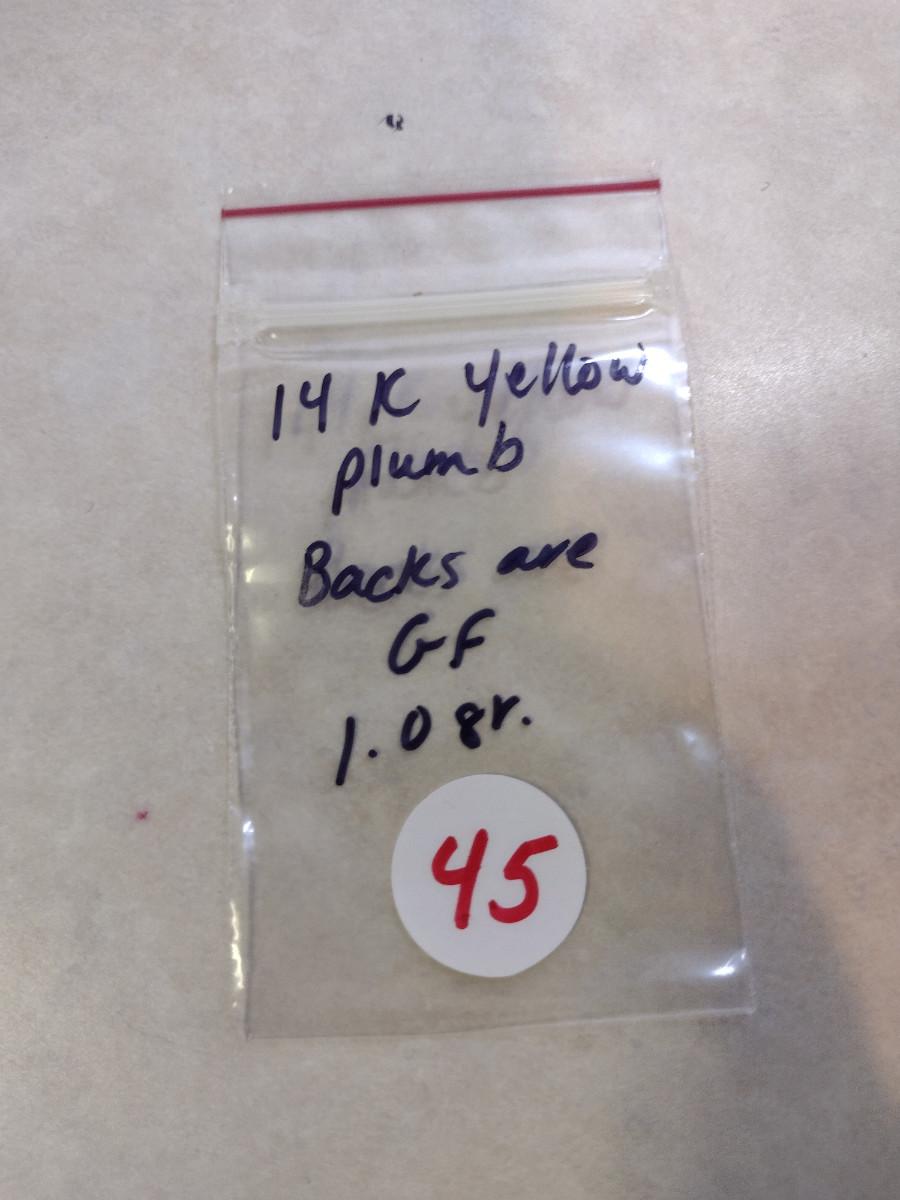 14 K Yellow
plumb
Backs are
GF
1.0 gr.
45